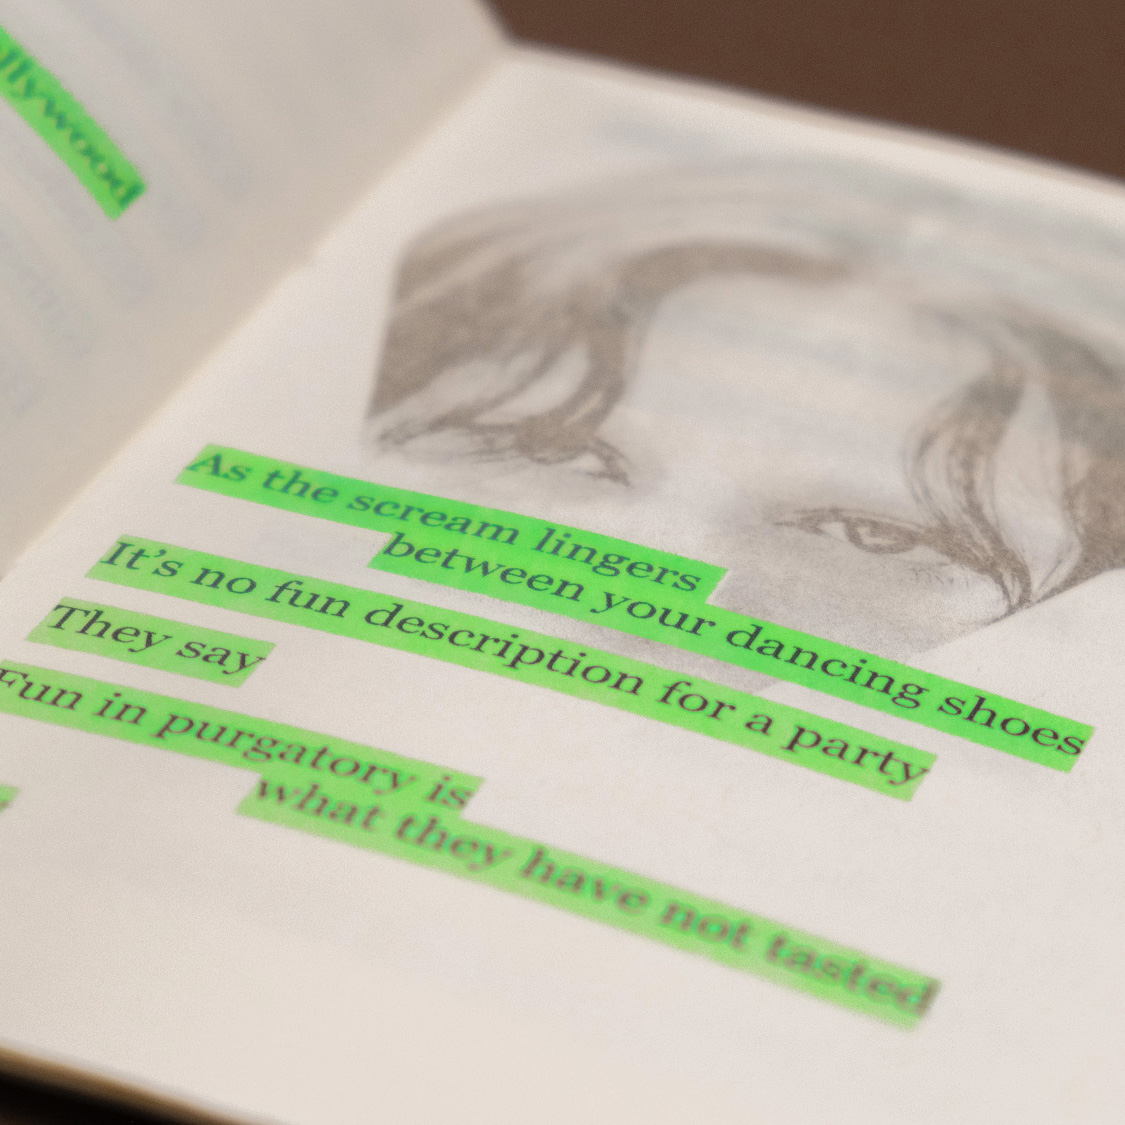 As the scream lingers
between your dancing shoes
It’s no fun description for a party
They say
Fun in purgatory is
what they have not tasted